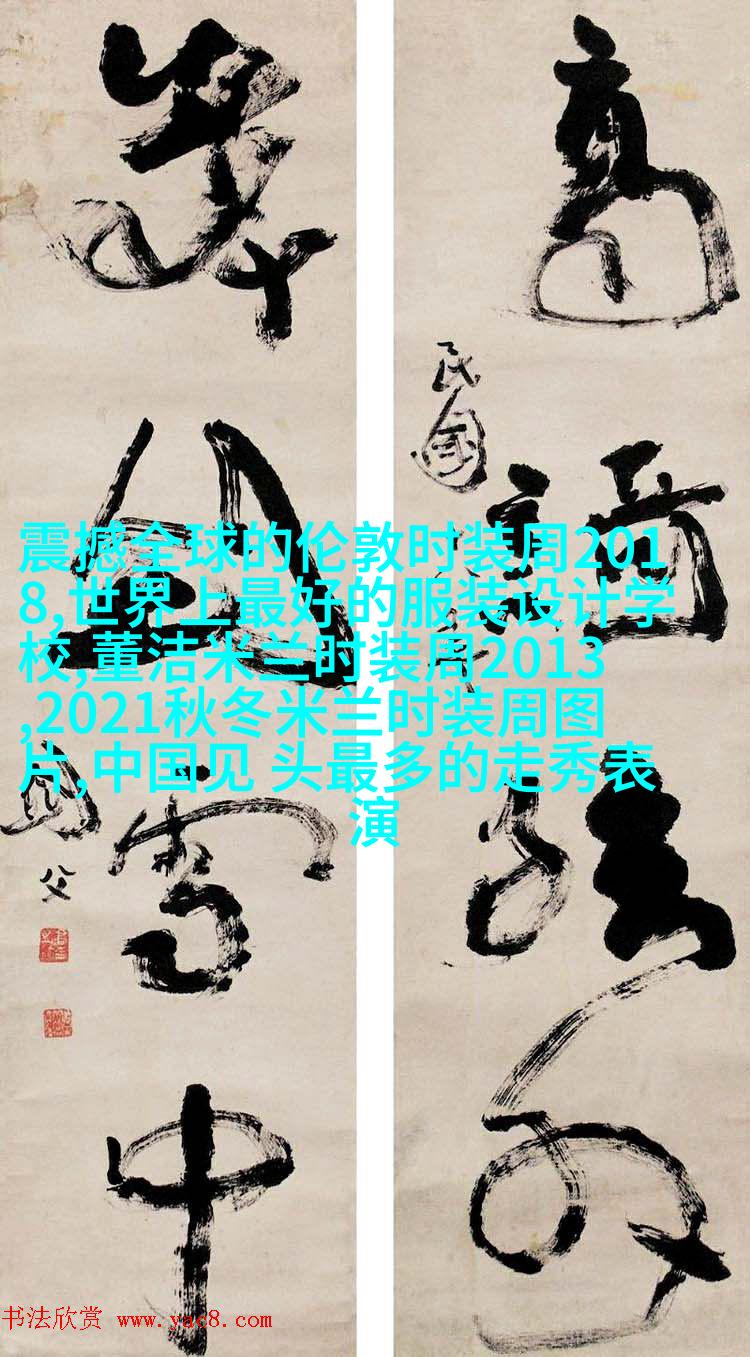 震撼全球的伦敦时装周201
8,世界上最好的服装设计学
校,董洁米兰时装周2013
,2021秋冬米兰时装周图
片,中国见 头最多的走秀表
演
高
民國
雪中
父
书法欣赏 www.yac8.com